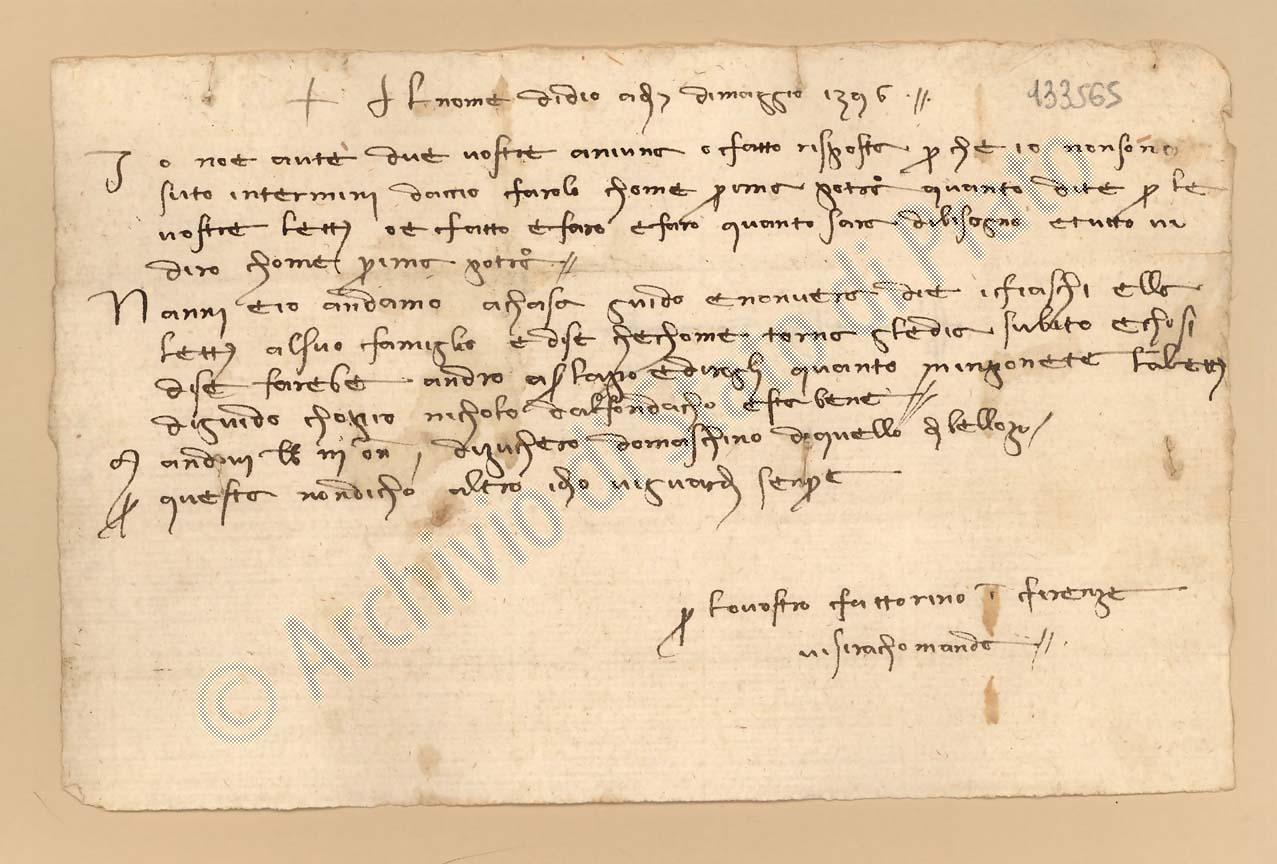 + Al nome didio adi 7 dimaggio 1396 //
133565
Io noe aute due vostre aniuna o fatto risposta p che io nonsono
suto intermini dacio farolo chome prima potro quanto dite p le
vostre lett oe fatto e faro e faro quanto sara dibisogno e tutto vi
diro chome prima potro //
Nanni e io andamo achasa guido e nonvera die i fiaschi ella
lett alsuo famiglo e dise chechome torna gledia subito e chosi
dise farebe andro a e diregli quanto minponete la lett
diguido chopio nicholo dalfondacho e sta bene //
andovi lb iii on dizuchero domaschino diquello
p questa nondicho altro idio viguardi senpre
p lovostro fattorino i firenze
visirachomanda //
© Archivio di Stato di Prato